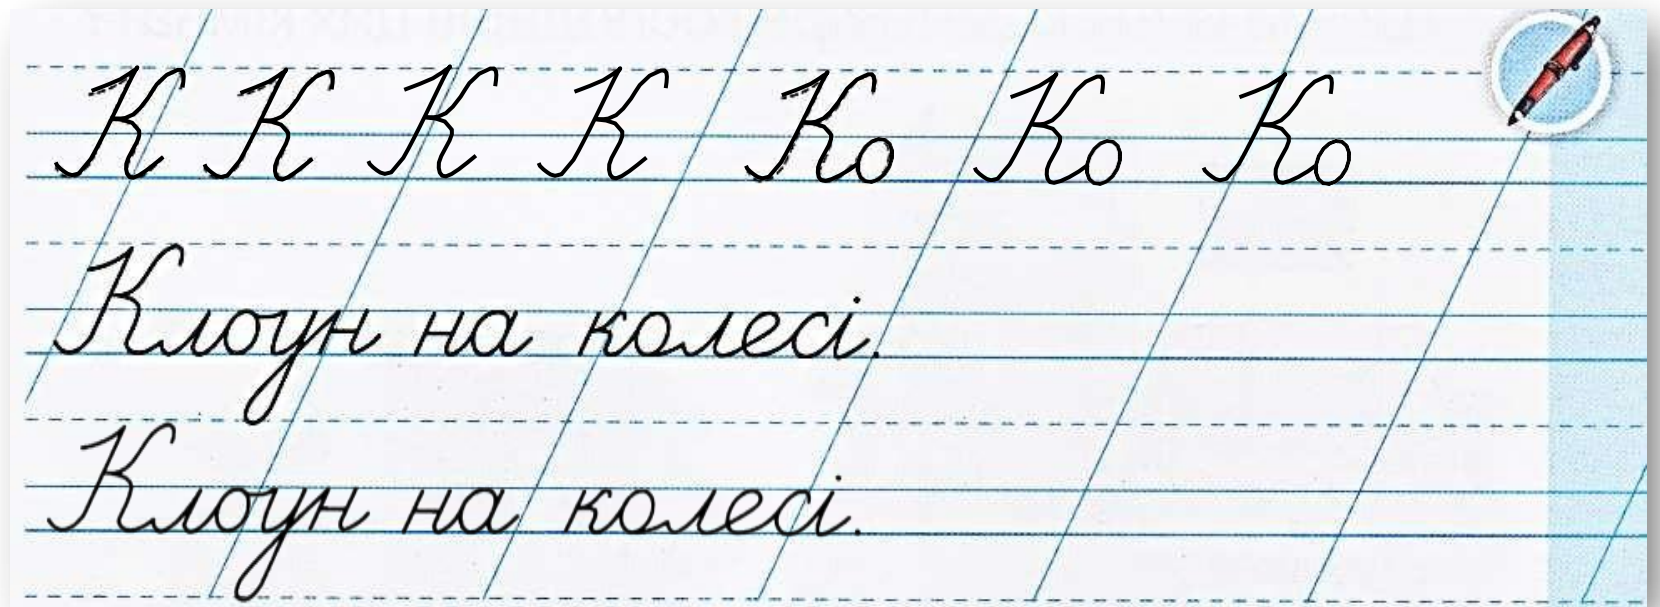 К К К К Ко Ко Ко
Клоун на колесі.
Клоун на колесі.